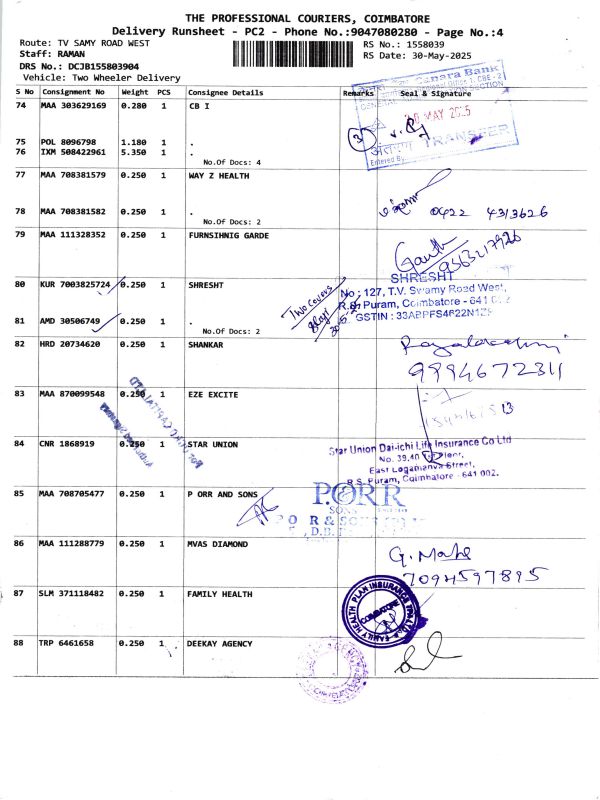 THE PROFESSIONAL COURIERS, COIMBATORE
Delivery Runsheet - PC2 - Phone No.:9047080280 - Page No.:4
Route: TV SAMY ROAD WEST
RS No.: 1558039
Staff: RAMAN
RS Date: 30-May-2025
DRS No.: DCJB155803904
Vehicle: Two Wheeler Delivery
S No Consignment No Weight PCS Consignee Details Remarks Seal & Signature
74 MAA 303629169 0.280 1 CB I
Canara Bank
MAY
TRANSFER
Entered By
3
75 POL 8096798 1.180 1 .
76 IXM 508422961 5.350 1 .
No.Of Docs: 4
77 MAA 708381579 0.250 1 WAY Z HEALTH
78 MAA 708381582 0.250 1 .
No.Of Docs: 2
0422 4313626
79 MAA 111328352 0.250 1 FURNSIHNIG GARDE
80 KUR 7003825724 0.250 1 SHRESHT
Two Covers
SHRESHT
No : 127, T.V. Swamy Road West,
R.S. Puram, Coimbatore - 641
81 AMD 30506749 0.250 1 .
No.Of Docs: 2
82 HRD 20734620 0.250 1 SHANKAR
9994672311
83 MAA 870099548 0.250 1 EZE EXCITE
84 CNR 1868919 0.250 1 STAR UNION
Star Union Dai-ichi Life Insurance Co Ltd
No. 39,40 Floor,
East Logamanya Street,
R.S. Puram, Coimbatore - 641 002.
85 MAA 708705477 0.250 1 P ORR AND SONS
P.ORR
SONS
86 MAA 111288779 0.250 1 MVAS DIAMOND
7094597895
87 SLM 371118482 0.250 1 FAMILY HEALTH
FAMILY HEALTH PLAN INSURANCE TPA LTD.
COIMBATORE
88 TRP 6461658 0.250 1 DEEKAY AGENCY